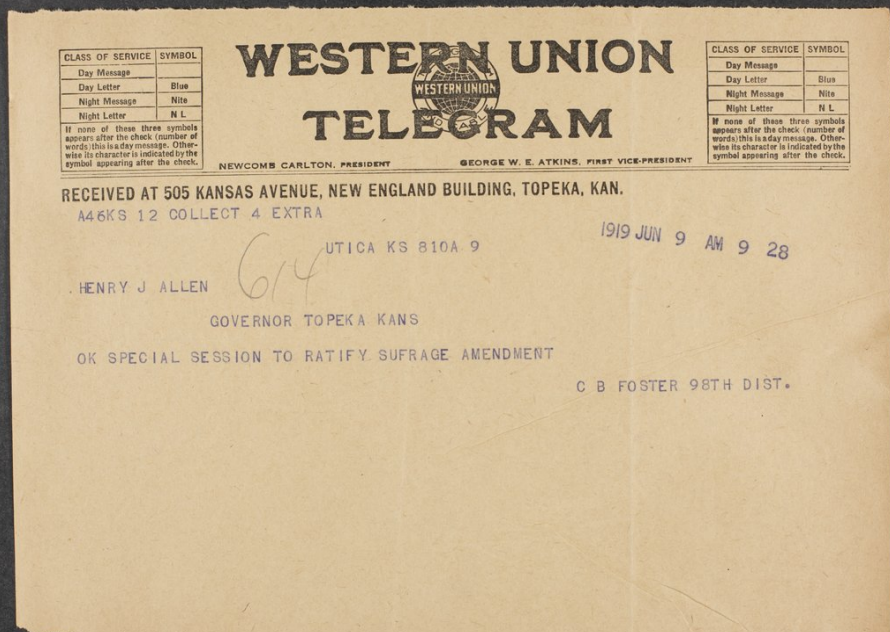 CLASS OF SERVICE SYMBOL
Day Message
Day Letter Blue
Night Message Nite
Night Letter N L
If none of these three symbols
appears after the check (number of
words) this is a day message. Other-
wise its character is indicated by the
symbol appearing after the check.
WESTERN UNION
WESTERN UNION
TELEGRAM
NEWCOMB CARLTON, PRESIDENT GEORGE W. E. ATKINS, FIRST VICE-PRESIDENT
CLASS OF SERVICE SYMBOL
Day Message
Day Letter Blue
Night Message Nite
Night Letter N L
If none of these three symbols
appears after the check (number of
words) this is a day message. Other-
wise its character is indicated by the
symbol appearing after the check.
RECEIVED AT 505 KANSAS AVENUE, NEW ENGLAND BUILDING, TOPEKA, KAN.
A46KS 12 COLLECT 4 EXTRA
1919 JUN 9 AM 9 28
UTICA KS 810A 9
614
HENRY J ALLEN
GOVERNOR TOPEKA KANS
OK SPECIAL SESSION TO RATIFY SUFRAGE AMENDMENT
C B FOSTER 98TH DIST.